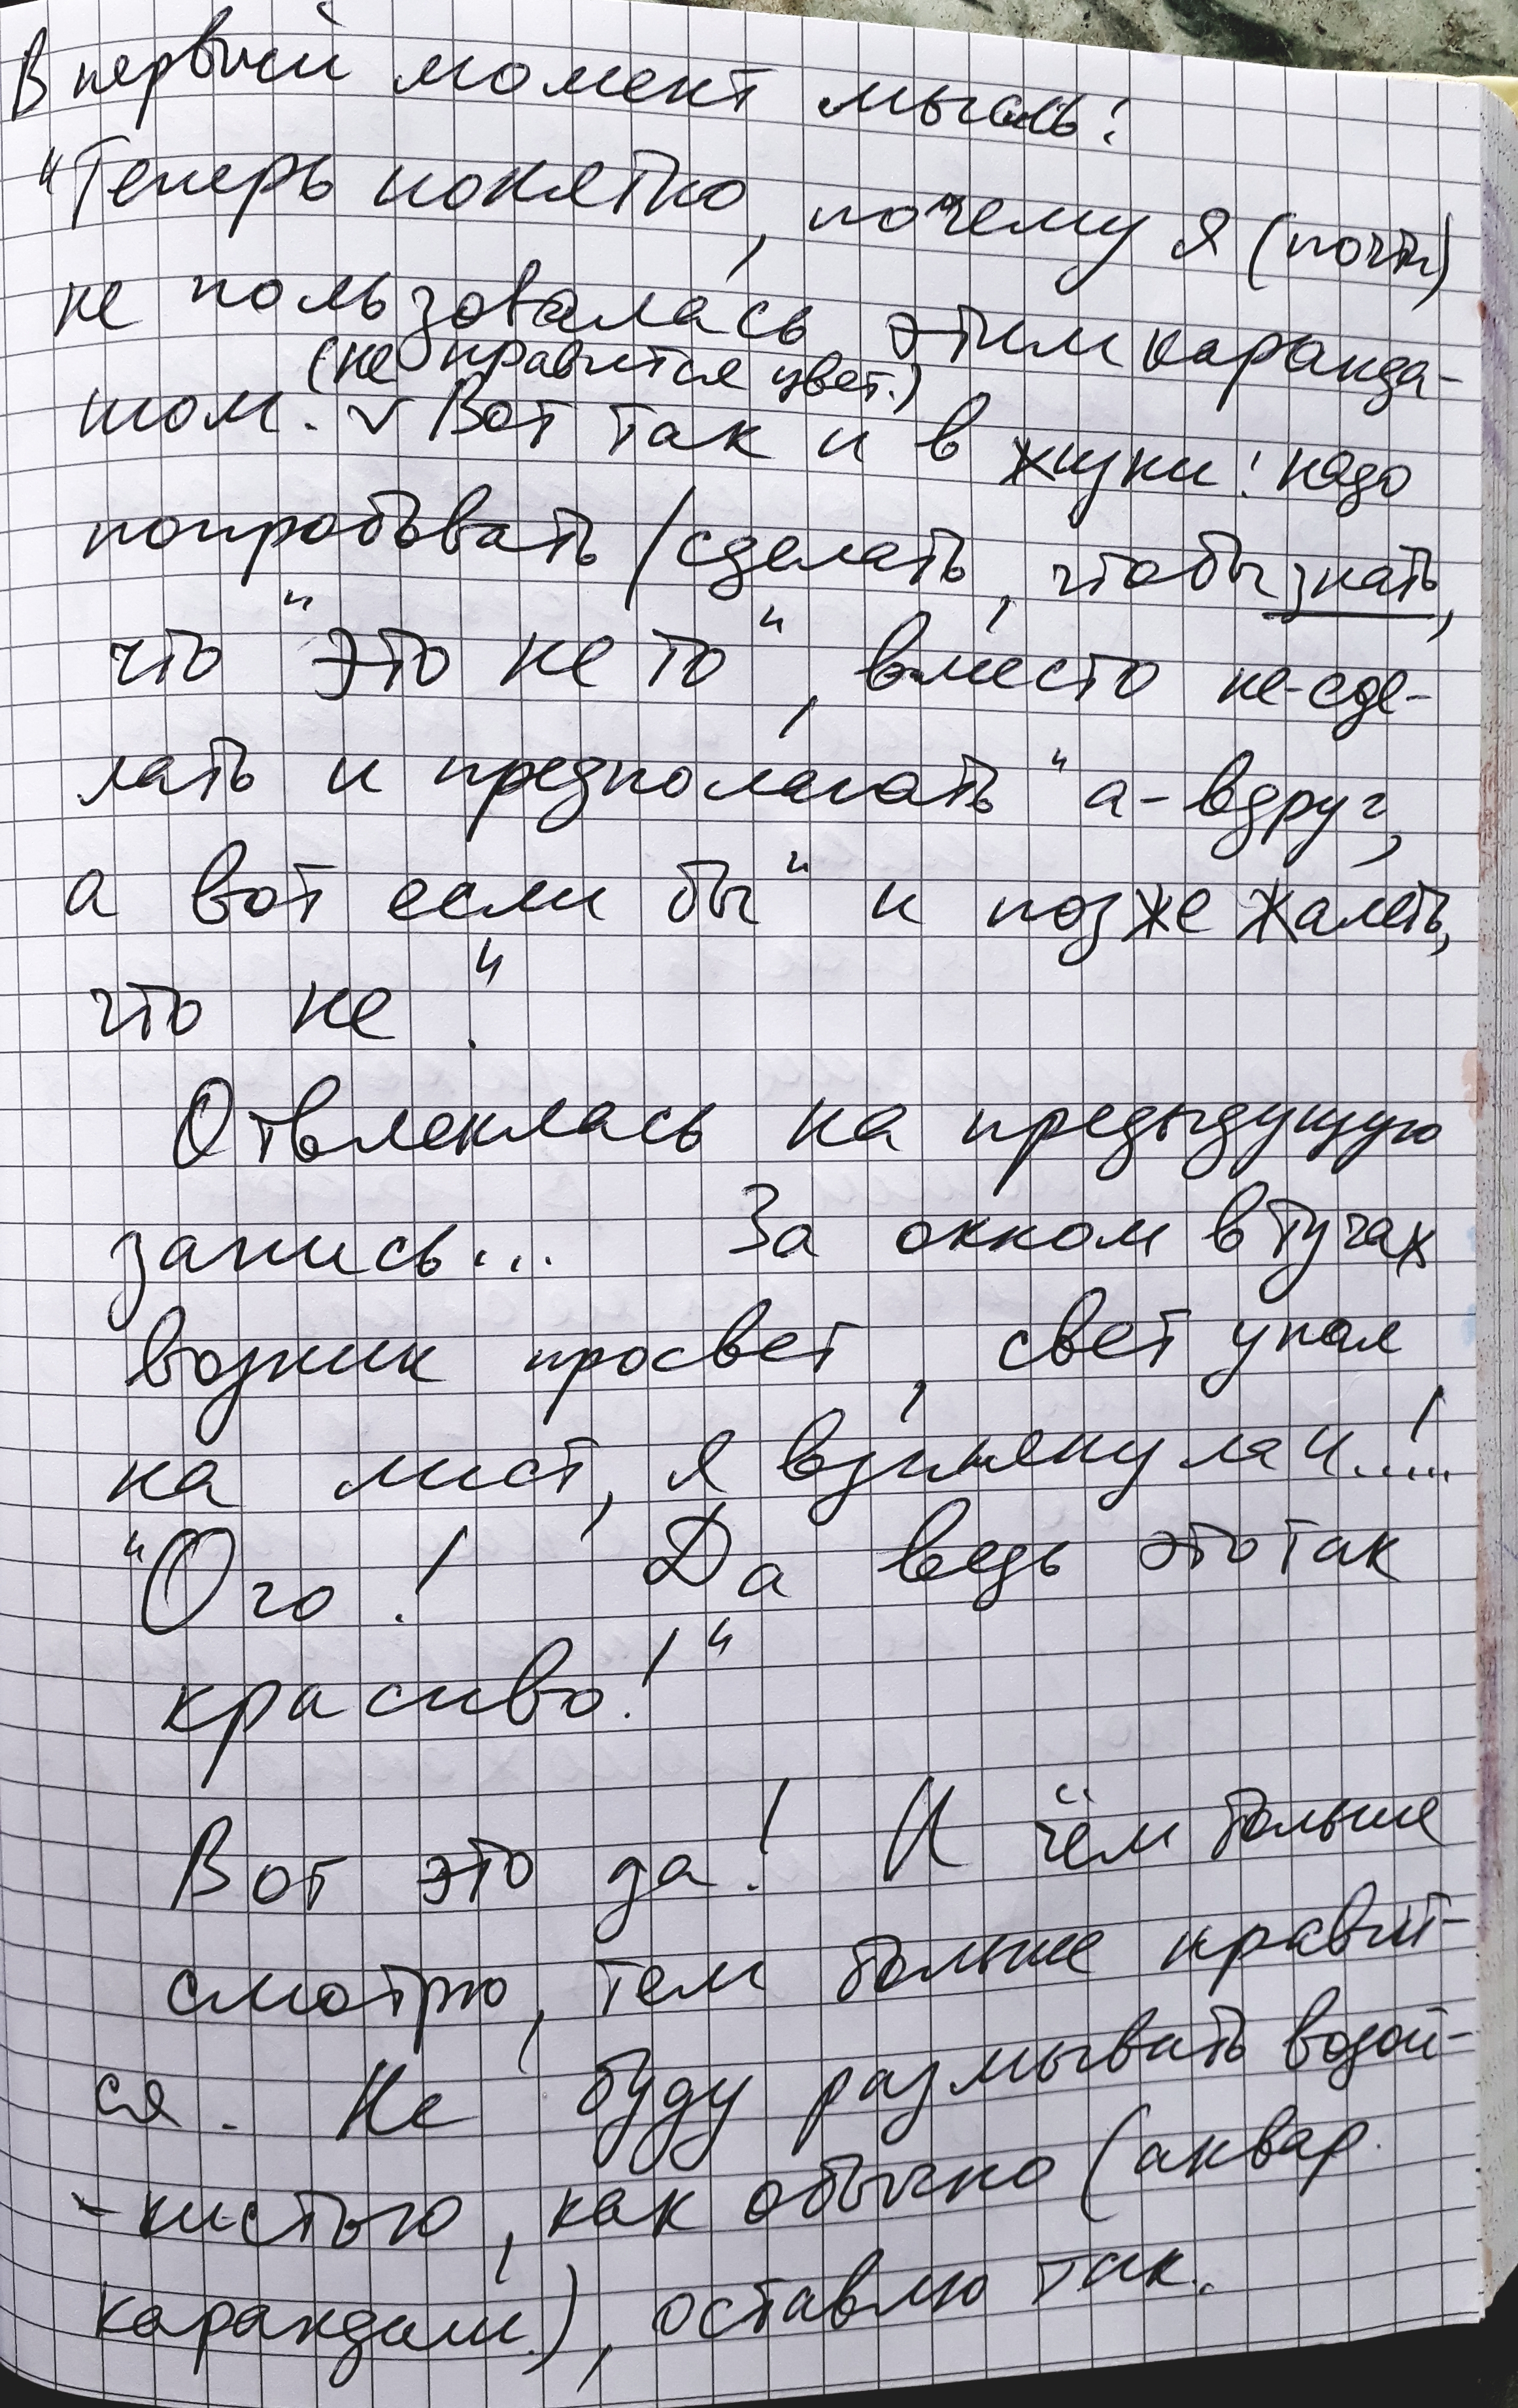 В первый момент мысль:
"Теперь понятно, почему я (почти)
не пользовалась этим каранда-
(не нравится цвет.)
шом. v Вот так и в жизни: надо
попробывать/сделать, чтобы знать,
что "это не то", вместо не-сде-
лать и предполагать "а-вдруг,
а вот если бы" и позже жалеть,
что не".
Отвлеклась на предыдущую
запись... За окном в тучах
возник просвет, свет упал
на лист, я взглянула и.....!
"Ого! Да ведь это так
красиво!"
Вот это да! И чем больше
смотрю, тем больше нравит-
ся. Не буду размывать водой-
-кистью, как обычно (аквар.
карандаш.), оставлю так.